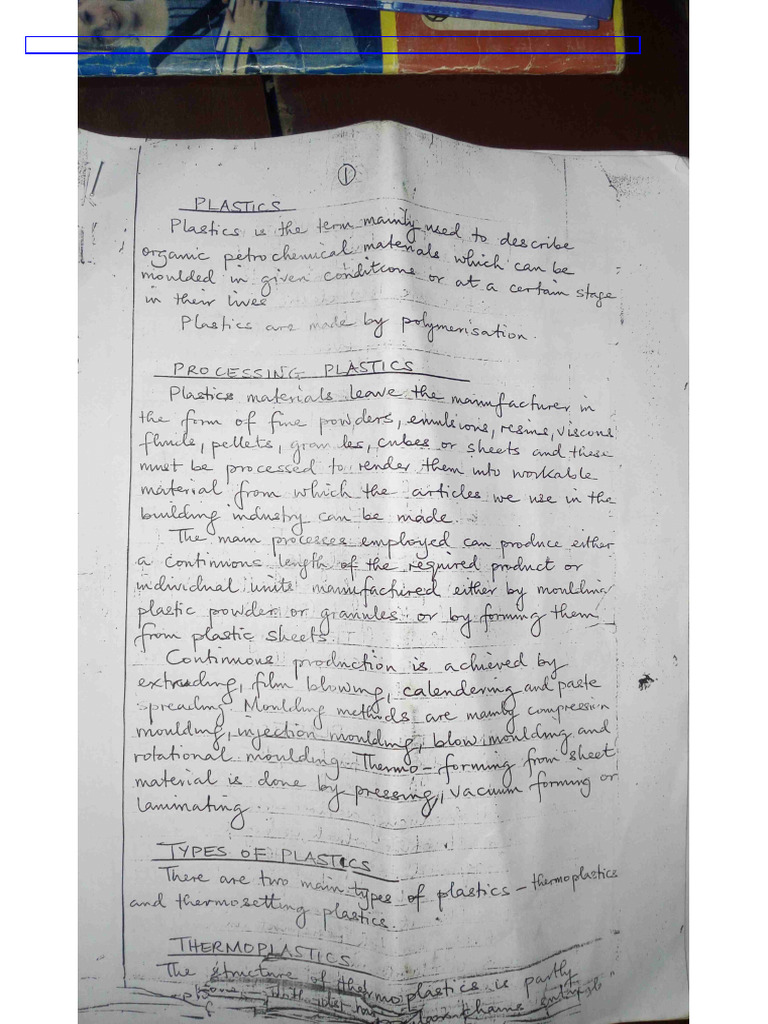 1
PLASTICS
Plastics is the term mainly used to describe
organic petrochemical materials which can be
moulded in given conditions or at a certain stage
in their lives
Plastics are made by polymerisation.
PROCESSING PLASTICS
Plastics materials leave the manufacturer in
the form of fine powders, emulsions, resins, viscous
fluids, pellets, granules, cubes or sheets and these
must be processed to render them into workable
material from which the articles we use in the
building industry can be made.
The main processes employed can produce either
a continuous length of the required product or
individual units manufactured either by moulding
plastic powder or granules or by forming them
from plastic sheets.
Continuous production is achieved by
extruding, film blowing, calendering and paste
spreading. Moulding methods are mainly compression
moulding, injection moulding, blow moulding and
rotational moulding. Thermo-forming from sheet
material is done by pressing, vacuum forming or
laminating.
TYPES OF PLASTICS
There are two main types of plastics - thermoplastics
and thermosetting plastics.
THERMOPLASTICS
The structure of thermoplastics is partly